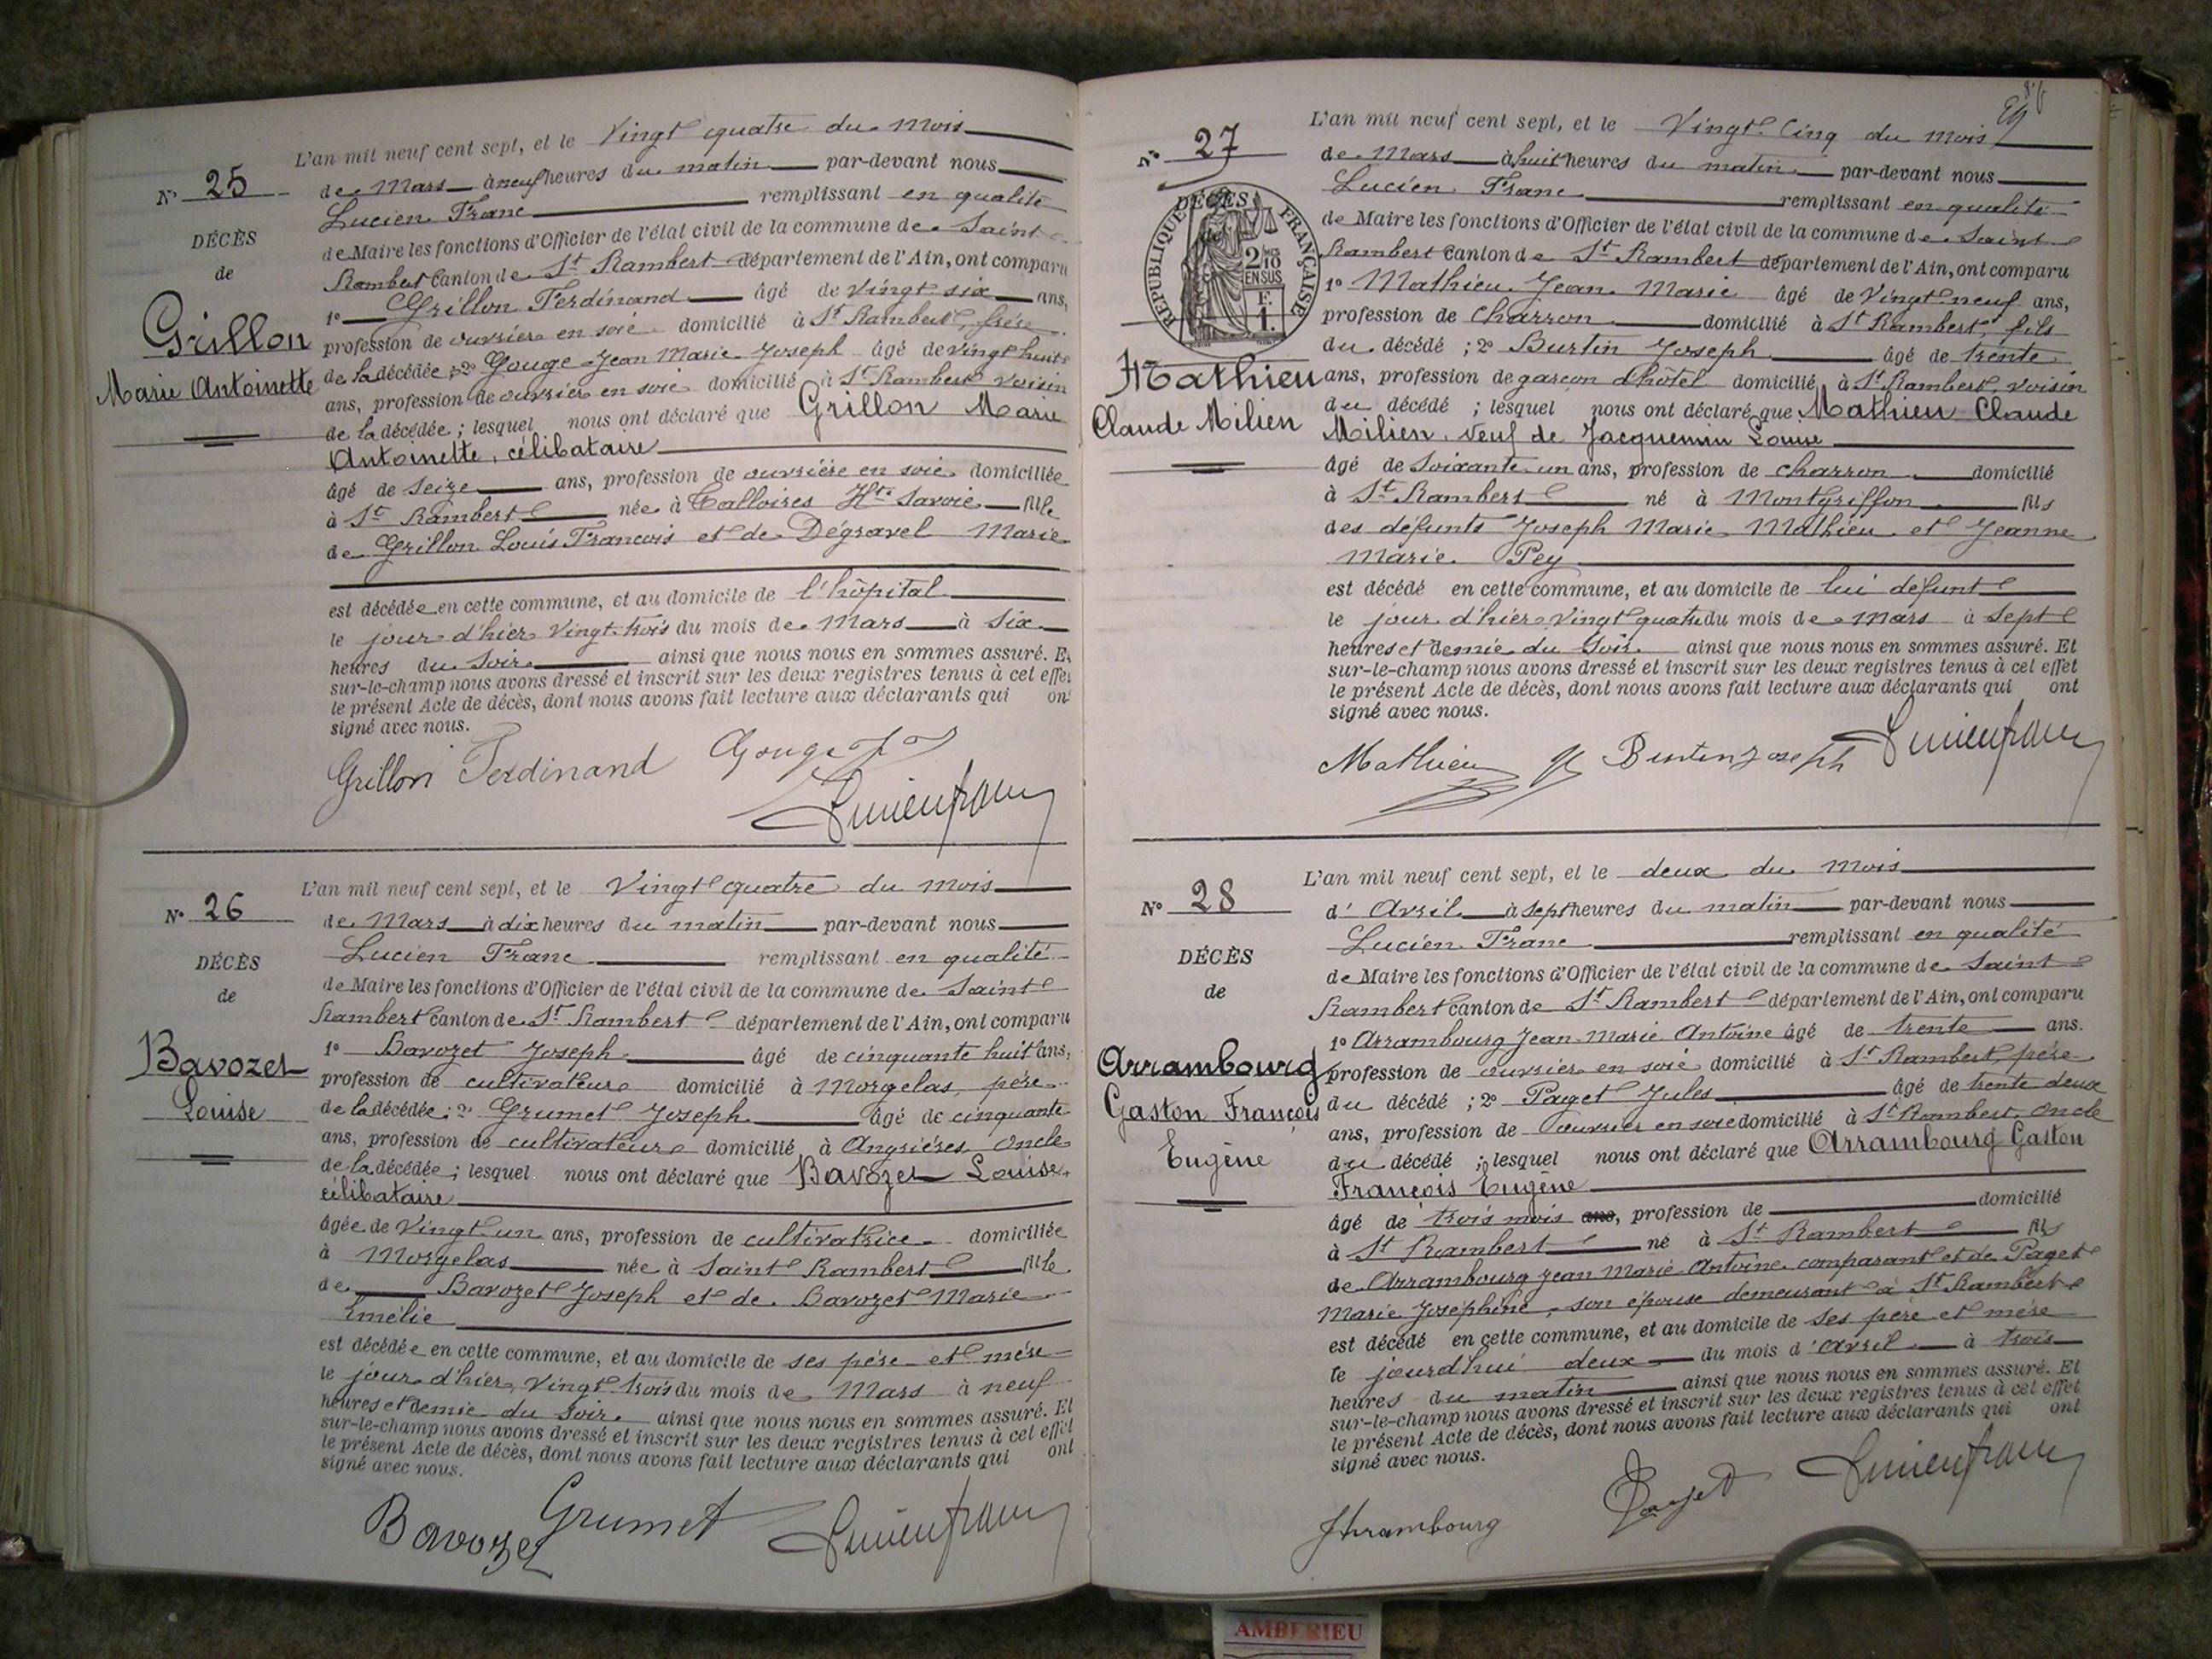 N° 25
DÉCÈS
de
Grillon
Marie Antoinette
L'an mil neuf cent sept, et le Vingt quatre du mois
de Mars à neuf heures du matin par-devant nous
Lucien Franc remplissant en qualité
de Maire les fonctions d'Officier de l'état civil de la commune de Saint
Rambert canton de St Rambert département de l'Ain, ont comparu
1° Grillon Ferdinand âgé de vingt six ans,
profession de ouvrier en soie domicilié à St Rambert, frère
de la décédée; 2° Gouge Jean Marie Joseph âgé de vingt huit
ans, profession de ouvrier en soie domicilié à St Rambert voisin
de la décédée; lesquel nous ont déclaré que Grillon Marie
Antoinette, célibataire
âgé de seize ans, profession de ouvrière en soie domiciliée
à St Rambert née à Talloires Hte Savoie fille
de Grillon Louis François et de Dégravel Marie
est décédée en cette commune, et au domicile de l'hôpital
le jour d'hier vingt-trois du mois de Mars à six
heures du soir ainsi que nous nous en sommes assuré. Et
sur-le-champ nous avons dressé et inscrit sur les deux registres tenus à cet effet
le présent Acte de décès, dont nous avons fait lecture aux déclarants qui ont
signé avec nous.
Grillon Ferdinand Gouge
Lucien franc
N° 26
DÉCÈS
de
Bavozet
Louise
L'an mil neuf cent sept, et le Vingt quatre du mois
de Mars à dix heures du matin par-devant nous
Lucien Franc remplissant en qualité
de Maire les fonctions d'Officier de l'état civil de la commune de Saint
Rambert canton de St Rambert département de l'Ain, ont comparu
1° Bavozet Joseph âgé de cinquante huit ans,
profession de cultivateur domicilié à Morgelas, père
de la décédée; 2° Grumet Joseph âgé de cinquante
ans, profession de cultivateur domicilié à Angrières, oncle
de la décédée; lesquel nous ont déclaré que Bavozet Louise,
célibataire
âgée de Vingt-un ans, profession de cultivatrice domiciliée
à Morgelas née à Saint Rambert fille
de Bavozet Joseph et de Bavozet Marie
Emélie
est décédée en cette commune, et au domicile de ses père et mère
le jour d'hier, vingt trois du mois de Mars à neuf
heures et demie du soir ainsi que nous nous en sommes assuré. Et
sur-le-champ nous avons dressé et inscrit sur les deux registres tenus à cet effet
le présent Acte de décès, dont nous avons fait lecture aux déclarants qui ont
signé avec nous.
Bavozet Grumet Lucien franc
N° 27
DÉCÈS
RÉPUBLIQUE FRANÇAISE
2/10
EN SUS
F.
1.
Mathieu
Claude Milien
L'an mil neuf cent sept, et le Vingt-Cinq du mois
de Mars à huit heures du matin par-devant nous
Lucien Franc remplissant en qualité
de Maire les fonctions d'Officier de l'état civil de la commune de Saint
Rambert canton de St Rambert département de l'Ain, ont comparu
1° Mathieu Jean Marie âgé de Vingt-neuf ans,
profession de charron domicilié à St Rambert fils
du décédé; 2° Burtin Joseph âgé de trente
ans, profession de garçon d'hôtel domicilié à St Rambert, voisin
du décédé; lesquel nous ont déclaré que Mathieu Claude
Milien, veuf de Jacquemin Louise
âgé de soixante-un ans, profession de charron domicilié
à St Rambert né à Montgriffon fils
des défunts Joseph Marie Mathieu et Jeanne
Marie Pey
est décédé en cette commune, et au domicile de lui défunt
le jour d'hier vingt quatre du mois de Mars à sept
heures et demie du soir ainsi que nous nous en sommes assuré. Et
sur-le-champ nous avons dressé et inscrit sur les deux registres tenus à cet effet
le présent Acte de décès, dont nous avons fait lecture aux déclarants qui ont
signé avec nous.
Mathieu Burtin Joseph Lucien franc
N° 28
DÉCÈS
de
Arrambourg
Gaston François
Eugène
L'an mil neuf cent sept, et le deux du mois
d'Avril à sept heures du matin par-devant nous
Lucien Franc remplissant en qualité
de Maire les fonctions d'Officier de l'état civil de la commune de Saint
Rambert canton de St Rambert département de l'Ain, ont comparu
1° Arrambourg Jean Marie Antoine âgé de trente ans.
profession de ouvrier en soie domicilié à St Rambert, père
du décédé; 2° Paget Jules âgé de trente deux
ans, profession de ouvrier en soie domicilié à St Rambert, oncle
du décédé; lesquel nous ont déclaré que Arrambourg Gaston
François Eugène
âgé de trois mois ans, profession de domicilié
à St Rambert né à St Rambert fils
de Arrambourg Jean Marie Antoine comparant et de Paget
Marie Joséphine, son épouse demeurant à St Rambert
est décédé en cette commune, et au domicile de ses père et mère
le jourd'hui deux du mois d'avril à trois
heures du matin ainsi que nous nous en sommes assuré. Et
sur-le-champ nous avons dressé et inscrit sur les deux registres tenus à cet effet
le présent Acte de décès, dont nous avons fait lecture aux déclarants qui ont
signé avec nous.
Arrambourg Paget Lucien franc
AMBERIEU